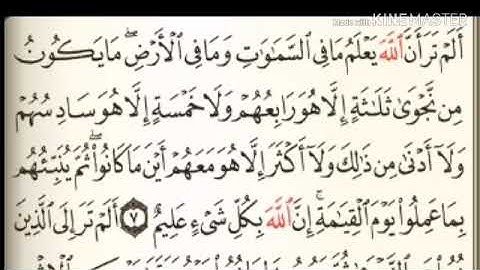 Made with KINEMASTER
أَلَمْ تَرَ أَنَّ ٱللَّهَ يَعْلَمُ مَا فِي ٱلسَّمَٰوَٰتِ وَمَا فِي ٱلْأَرْضِۖ مَا يَكُونُ
مِن نَّجْوَىٰ ثَلَٰثَةٍ إِلَّا هُوَ رَابِعُهُمْ وَلَا خَمْسَةٍ إِلَّا هُوَ سَادِسُهُمْ
وَلَآ أَدْنَىٰ مِن ذَٰلِكَ وَلَآ أَكْثَرَ إِلَّا هُوَ مَعَهُمْ أَيْنَ مَا كَانُوا۟ۖ ثُمَّ يُنَبِّئُهُم
بِمَا عَمِلُوا۟ يَوْمَ ٱلْقِيَٰمَةِۚ إِنَّ ٱللَّهَ بِكُلِّ شَىْءٍ عَلِيمٌ ٧ أَلَمْ تَرَ إِلَى ٱلَّذِينَ